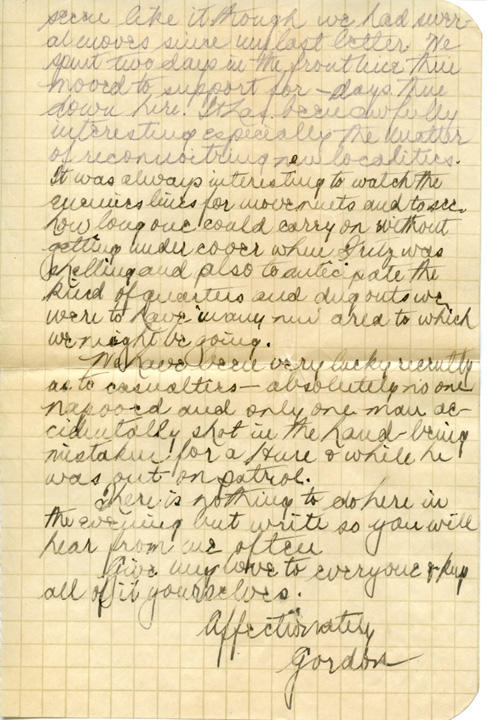 seem like it though we had sever-
al moves since my last letter. We
spent two days in the front line then
moved to support for – days then
down here. It has been awfully
interesting especially the matter
of reconnoitring new localities.
It was always interesting to watch the
enemies lines for movements and to see
how long one could carry on without
getting under cover when Fritz was
shelling and also to anticipate the
kind of quarters and dugouts we
were to have in any new area to which
we might be going.
We have been very lucky recently
as to casualties – absolutely no one
napooed and only one man ac-
cidentally shot in the hand – being
mistaken for a Hun & while he
was out on patrol.
There is nothing to do here in
the evening but write so you will
hear from me often
Give my love to everyone & keep
all of it yourselves.
Affectionately
Gordon